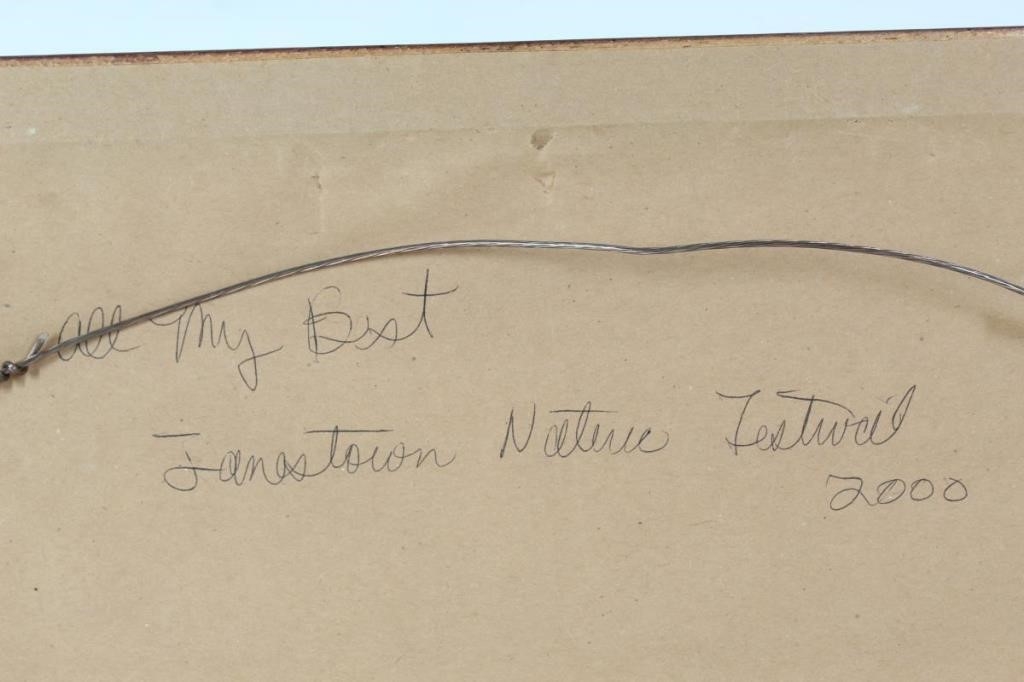 All My Best
Jamestown Nature Festival
2000